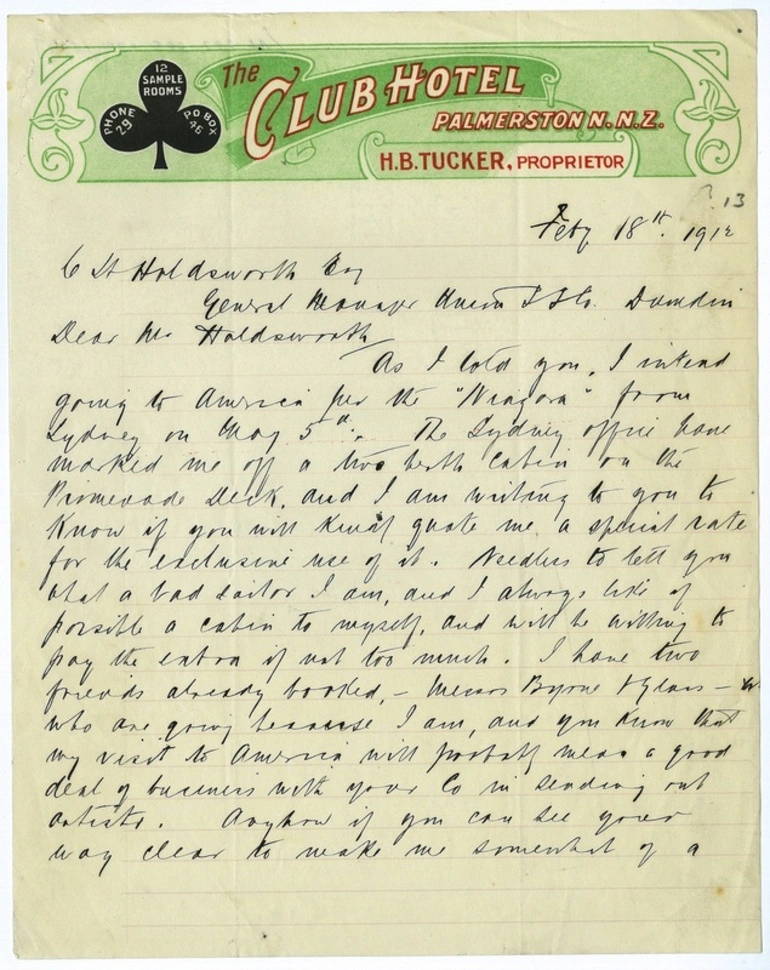 12
SAMPLE
ROOMS
PHONE
29
PO BOX
46
The
CLUB HOTEL
PALMERSTON N. N.Z.
H.B. TUCKER, PROPRIETOR
13
Feby 18th. 1912
C Holdsworth Esq
General Manager Union S S Co. Dunedin
Dear Mr Holdsworth
As I told you, I intend
going to America per the "Niagara" from
Sydney on May 5th. The Sydney office have
marked me off a two berth cabin on the
Promenade Deck, and I am writing to you to
know if you will kindly quote me a special rate
for the exclusive use of it. Needless to tell you
what a bad sailor I am, and I always like if
possible a cabin to myself, and will be willing to
pay the extra if not too much. I have two
friends already booked, - Messrs Byrne & -
who are going because I am, and you know that
my visit to America will probably mean a good
deal of business with your Co in sending out
artists. Anyhow if you can see your
way clear to make me somewhat of a